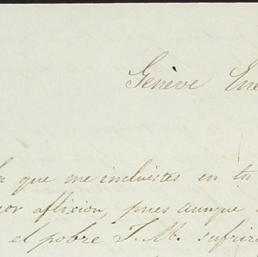 Genève Ene
que me incluistes en tu
or aflixion, pues aunque
el pobre J. M. sufrir